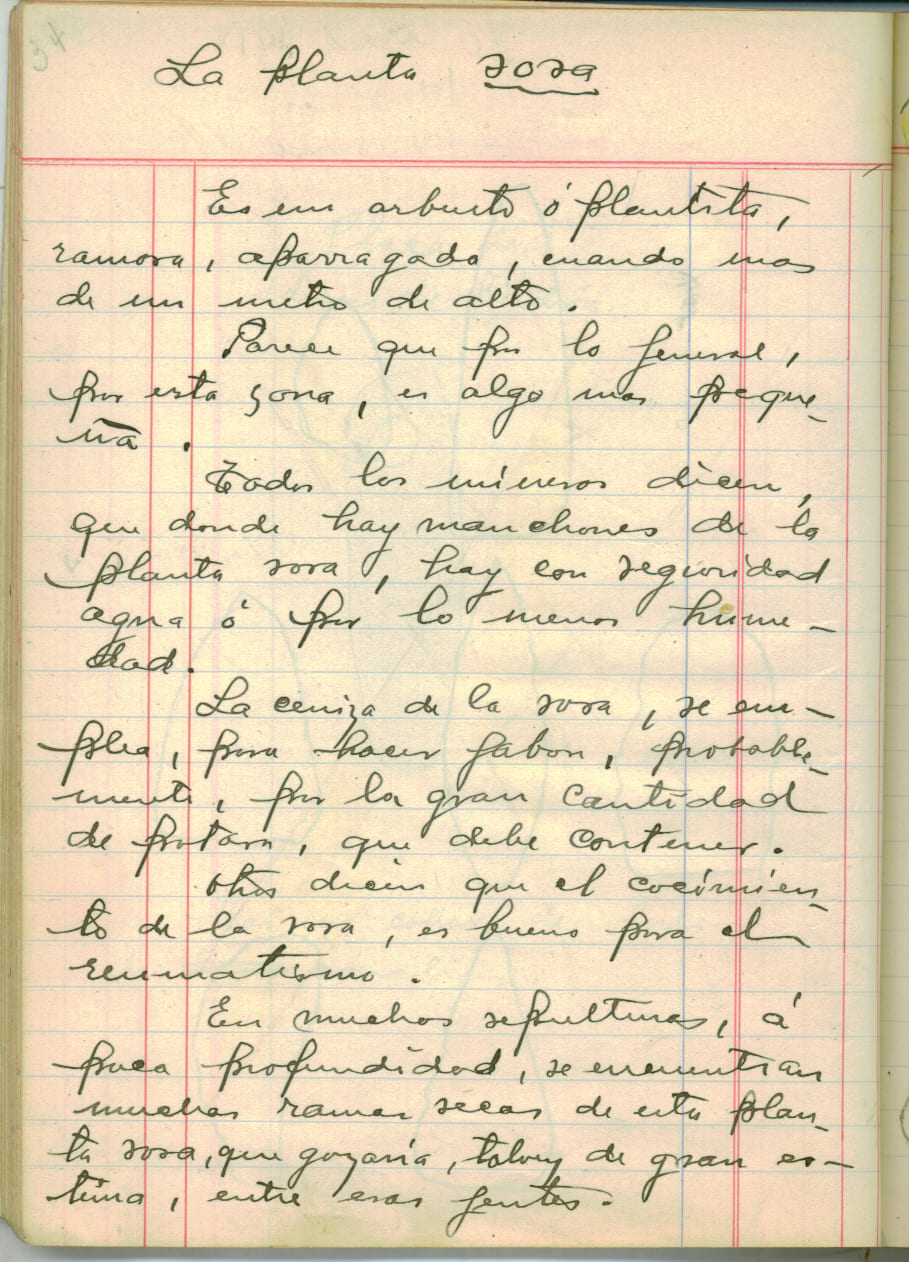 34
La planta sosa
Es un arbusto ó plantita,
ramosa, aparragada, cuando mas
de un metro de alto.
Parece que por lo general,
por esta zona, es algo mas peque-
ña.
Todos los mineros dicen,
que donde hay manchones de la
planta sosa, hay con seguridad
agua ó por lo menos hume-
dad.
La ceniza de la sosa, se em-
plea, para hacer jabon, probable-
mente, por la gran cantidad
de potasa, que debe contener.
Otros dicen que el cocimien-
to de la sosa, es bueno para el
reumatismo.
En muchas sepulturas, á
poca profundidad, se encuentran
muchas ramas secas de esta plan-
ta sosa, que gozaría, talvez de gran es-
tima, entre esas gentes.